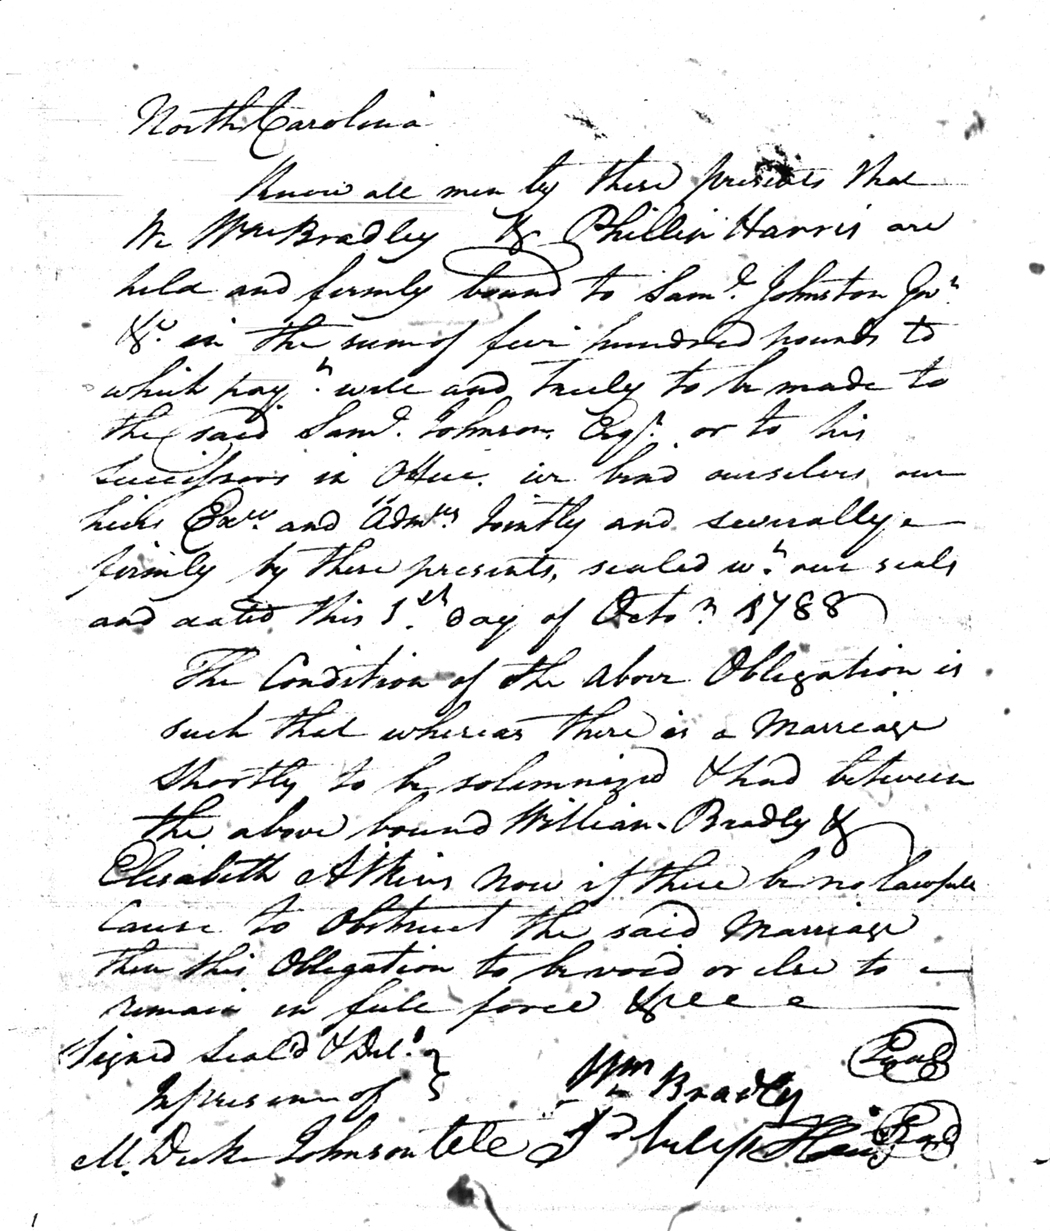 North Carolina
Know all men by these presents that
We Wm Bradley & Phillip Harris are
held and firmly bound to Saml. Johnston Gvr.
&c. in the sum of five hundred pounds to
which paymt. well and truly to be made to
the said Saml. Johnson, Esqr. or to his
successors in Office. we bind ourselves our
heirs Exrs. and Admrs Jointly and severally
firmly by these presents, sealed wth. our seals
and dated this day of Octor. 1788
The Condition of the above Obligation is
such that whereas there is a Marriage
shortly to be solemnized & had between
the above bound William Bradly &
Elisabeth Atkins Now if there be no lawfull
Cause to Obstruct the said Marriage
then this Obligation to be void or else to
remain in full force &
Signed Seal'd & Deld.
In presence of Wm Bradley Seal
M. Duke Johnson Philip Harris Seal